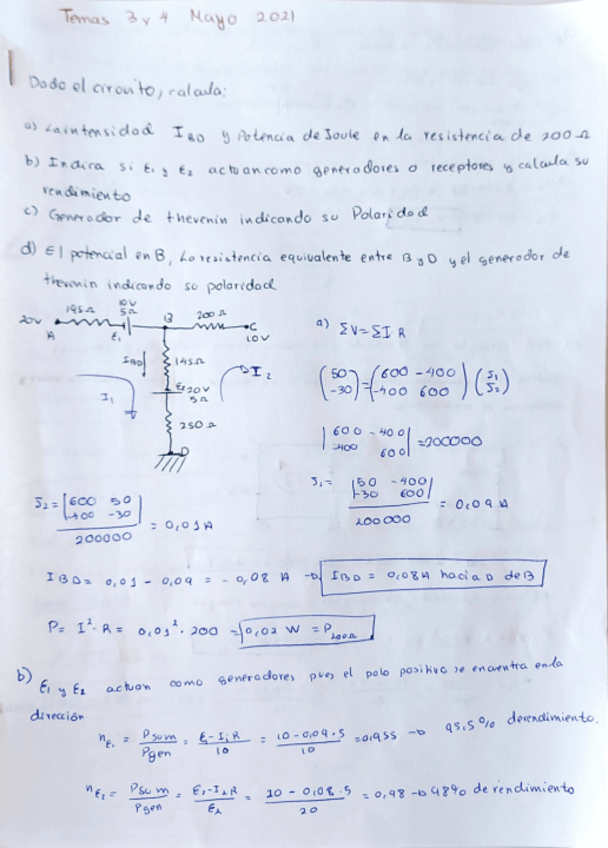 Temas 3 y 4 Mayo 2021
Dado el circuito, calcula:
a) La intensidad I_BD y Potencia de Joule en la resistencia de 200 Ω
b) Indica si ε₁ y ε₂ actuan como generadores o receptores y calcula su
rendimiento
c) Generador de thevenin indicando su Polaridad
d) El potencial en B, La resistencia equivalente entre B y D y el generador de
thevenin indicando su polaridad
20V A 195Ω 10V 5Ω ε₁ B 200Ω C 10V
I_BD 145Ω
ε₂ 20V 5Ω
I₁ I₂
250Ω
D
a) ΣV = ΣI R
(50 -30) = (600 -400 -400 600) (J₁ J₂)
|600 -400 -400 600| = 200000
J₁ = |50 -400 -30 600| / 200000 = 0,09 A
J₂ = |600 50 -400 -30| / 200000 = 0,01 A
I BD = 0,01 - 0,09 = -0,08 A → I BD = 0,08A hacia D de B
P = I² · R = 0,01² · 200 = 0,02 W = P₂₀₀Ω
b) ε₁ y ε₂ actuan como generadores pues el polo positivo se encuentra en la
dirección
n_ε₁ = Psum / Pgen = ε₁ - I₁R / 10 = 10 - 0,09 · 5 / 10 = 0,955 → 95,5 % de rendimiento.
n_ε₂ = Psum / Pgen = ε₂ - I₂R / ε₂ = 20 - 0,08 · 5 / 20 = 0,98 → 98% de rendimiento